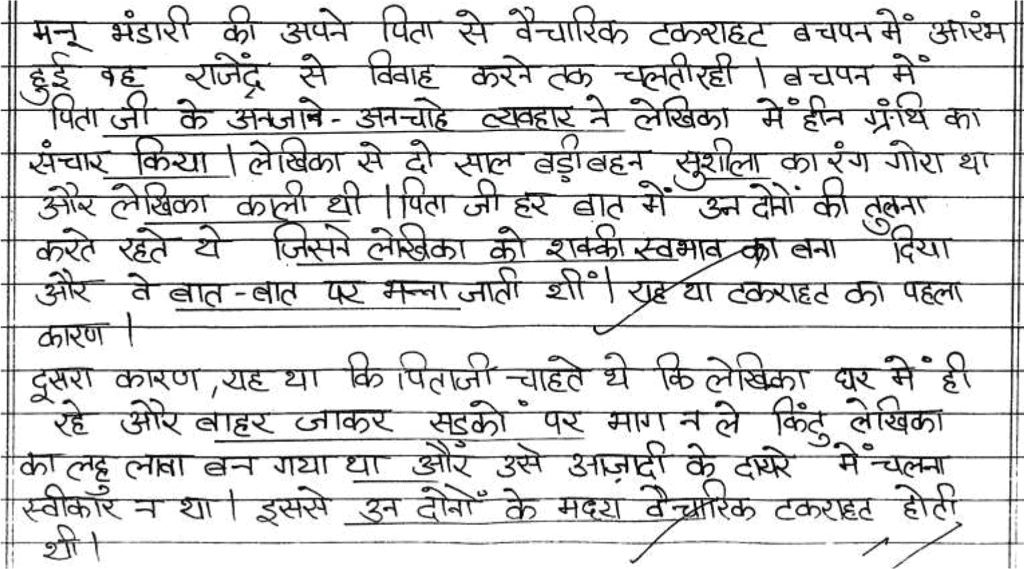 मन्नू भंडारी की अपने पिता से वैचारिक टकराहट बचपन में आरंभ
हुई वह राजेंद्र से विवाह करने तक चलती रही । बचपन में
पिता जी के अनजाने-अनचाहे व्यवहार ने लेखिका में हीन ग्रंथि का
संचार किया । लेखिका से दो साल बड़ी बहन सुशीला का रंग गोरा था
और लेखिका काली थी । पिता जी हर बात में उन दोनों की तुलना
करते रहते थे जिसने लेखिका को शक्की स्वभाव का बना दिया
और वे बात-बात पर भन्ना जाती थीं । यह था टकराहट का पहला
कारण ।
दूसरा कारण, यह था कि पिताजी चाहते थे कि लेखिका घर में ही
रहे और बाहर जाकर सड़कों पर भाग न ले किंतु लेखिका
का लहू लावा बन गया था और उसे आज़ादी के दायरे में चलना
स्वीकार न था । इससे उन दोनों के मध्य वैचारिक टकराहट होती
थी ।